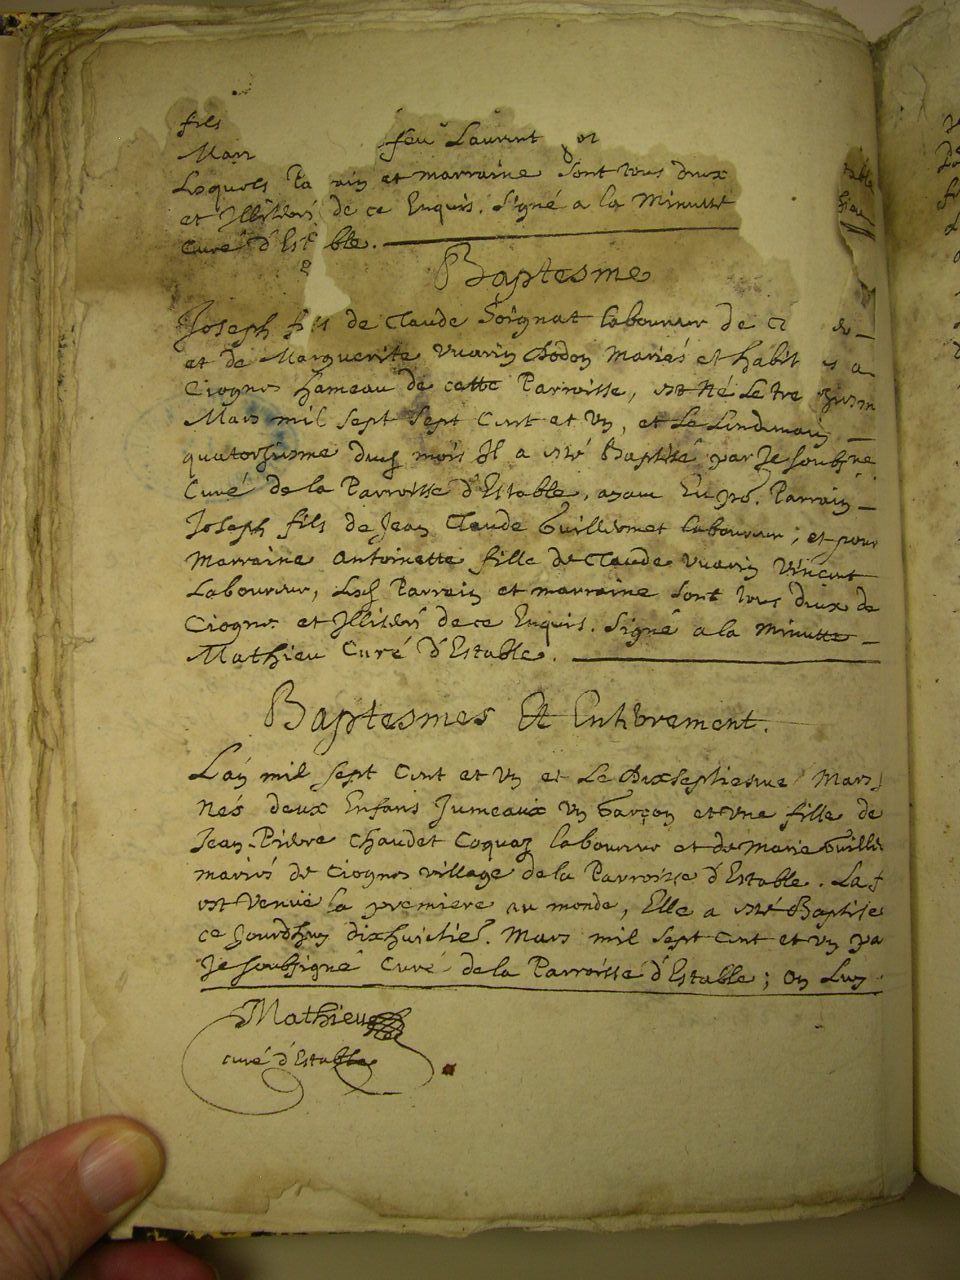 fils feu Laurent et
Marr
Lesquels Pa rain et marraine sont tous deux
et Illiterés de ce Enquis. Signé a la Minutte
Curé d'Est ble.
Baptesme
Joseph fils de Claude Soignat laboureur de
et de Marguerite Vuarin Dodon mariés et habit s a
Ciognes hameau de cette Parroisse, est Né Le tre ziesm
Mars mil sept sept Cent et Un, et Le Lendemain
quatorziesme dud mois Il a esté Baptisé par Je soubsné
Curé de la Parroisse d'Estable, ayant Parrain
Joseph fils de Jean Claude Guilliermet laboureur; et pour
Marraine Antoinette fille de Claude Vuarin Vincent
Laboureur, Lesq Parrain et marraine sont tous deux de
Ciognes et Illiterés de ce Enquis. Signé a la Minutte
Mathieu Curé d'Estable.
Baptesmes Et Enterement.
L'an mil sept Cent et Un et Le Dixseptiesme Mars
Nés deux Enfans Jumeaux Un Garçon et Une fille de
Jean Pierre Chaudet Coquaz laboureur et de Marie Guilli
mariés de Ciognes village de la Parroisse d'Estable. La f
est Venuë la premiere au monde, Elle a esté Baptise
ce Jourdhuy dixhuictie. Mars mil sept Cent et Un pa
Je soubsigné Curé de la Parroisse d'Estable; On Luy
Mathieu
curé d'Estable